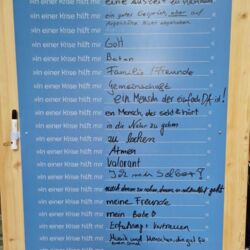 »In einer Krise hilft mir eine Auszeit zu nehmen
»In einer Krise hilft mir ein gutes Gespräch aber auf
»In einer Krise hilft mir
»In einer Krise hilft mir Gott
»In einer Krise hilft mir Beten
»In einer Krise hilft mir Familie / Freunde
»In einer Krise hilft mir Gemeinschaft
»In einer Krise hilft mir ein Mensch der einfach DA ist!
»In einer Krise hilft mir ein Mensch, der sieht & hört
»In einer Krise hilft mir in die Natur zu gehen
»In einer Krise hilft mir zu lachen
»In einer Krise hilft mir Atmen
»In einer Krise hilft mir Valorant
»In einer Krise hilft mir Ich mir Selber?
»In einer Krise hilft mir
»In einer Krise hilft mir meine Freunde
»In einer Krise hilft mir mein Baby
»In einer Krise hilft mir Erfahrung + Vertrauen
»In einer Krise hilft mir Musik und Menschen, die gut für